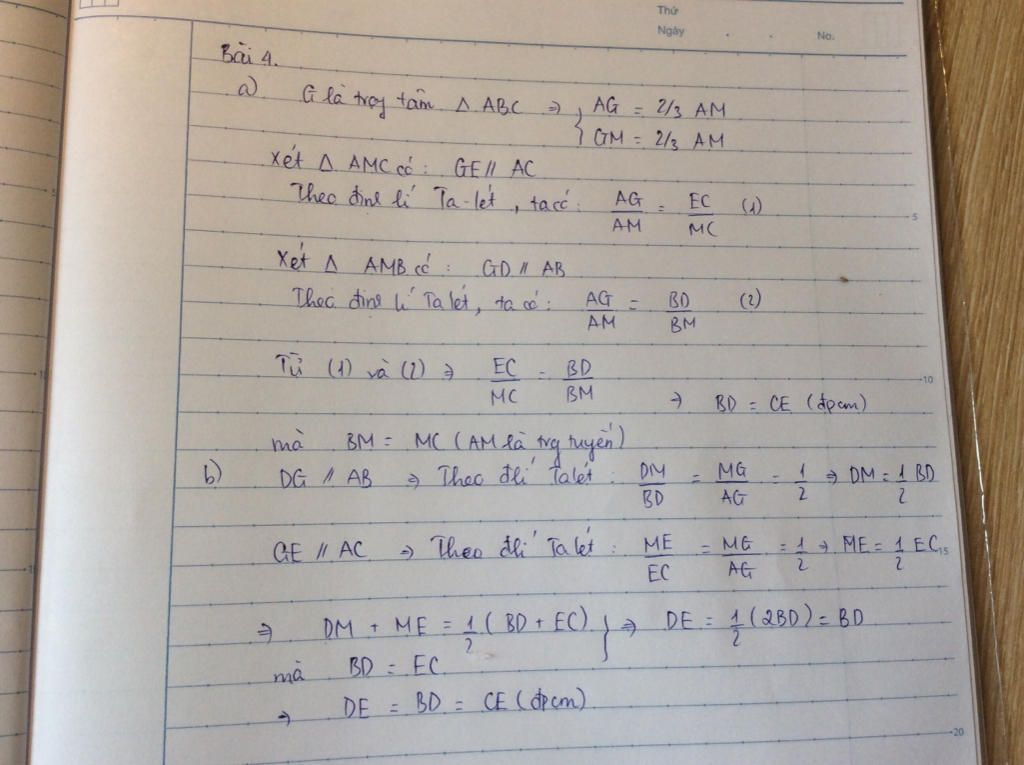 Thứ
Ngày . . No.
Bài 4.
a) G là trọg tâm Δ ABC ⇒ { AG = 2/3 AM
GM = 2/3 AM
Xét Δ AMC có: GE // AC
Theo định lí Ta-lét, ta có: AG/AM = EC/MC (1)
5
Xét Δ AMB có: GD // AB
Theo định lí Ta lét, ta có: AG/AM = BD/BM (2)
Từ (1) và (2) ⇒ EC/MC = BD/BM
10
⇒ BD = CE (đpcm)
mà BM = MC (AM là trg tuyến)
b) DG // AB ⇒ Theo đlí Talét: DM/BD = MG/AG = 1/2 ⇒ DM = 1/2 BD
GE // AC ⇒ Theo đlí Talét: ME/EC = MG/AG = 1/2 ⇒ ME = 1/2 EC
15
⇒ DM + ME = 1/2 (BD + EC) } ⇒ DE = 1/2 (2BD) = BD
mà BD = EC
⇒ DE = BD = CE (đpcm)
20